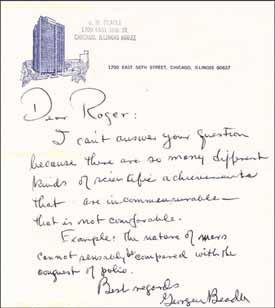 G. W. BEADLE
1700 EAST 56th ST.
CHICAGO, ILLINOIS 60637
1700 EAST 56TH STREET, CHICAGO, ILLINOIS 60637
Dear Roger:
I can't answer your question
because there are so many different
kinds of scientific achievements
that are incommensurable—
that is not comparable.
Example: The nature of mars
cannot sensibly be compared with the
conquest of polio.
Best regards
George Beadle